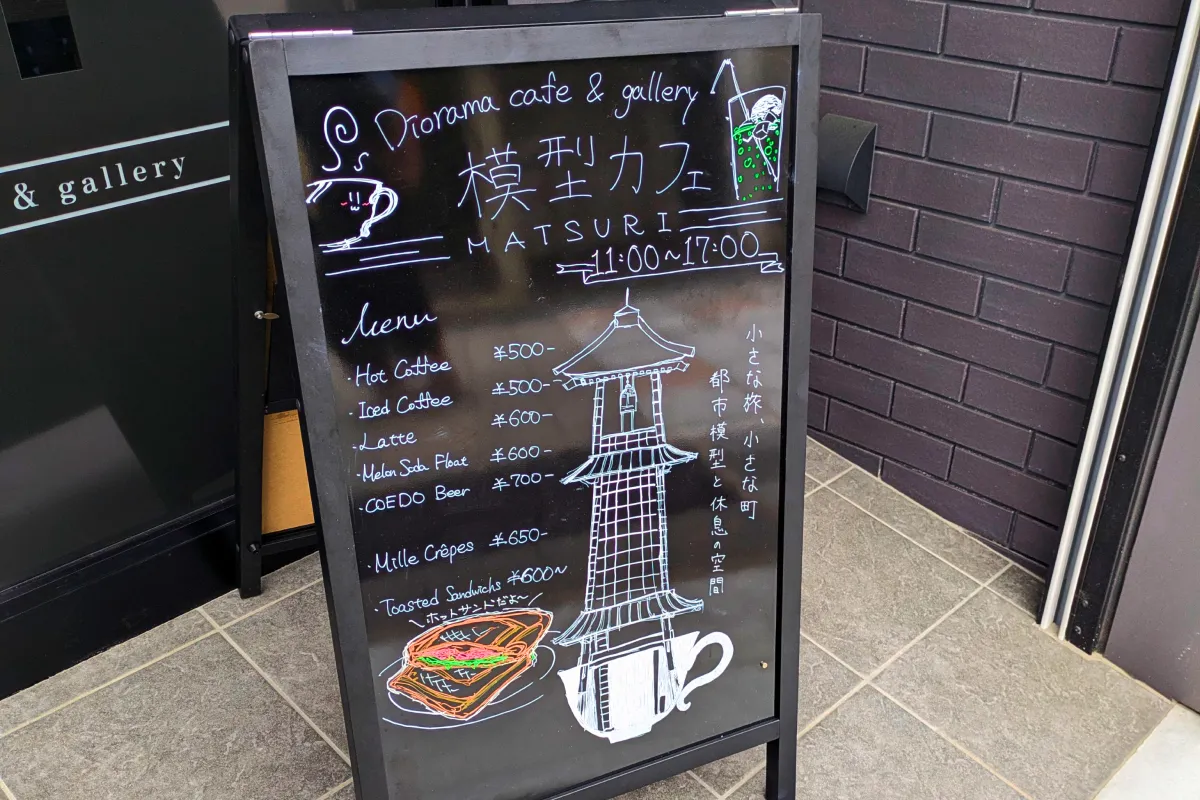 & gallery
Diorama cafe & gallery
模型カフェ
MATSURI
11:00~17:00
Menu
・Hot Coffee ¥500-
・Iced Coffee ¥500-
・Latte ¥600-
・Melon Soda Float ¥600-
・COEDO Beer ¥700-
・Mille Crêpes ¥650-
・Toasted Sandwichs ¥600~
\ホットサンドだよ~/
小さな旅、小さな町
都市模型と休息の空間